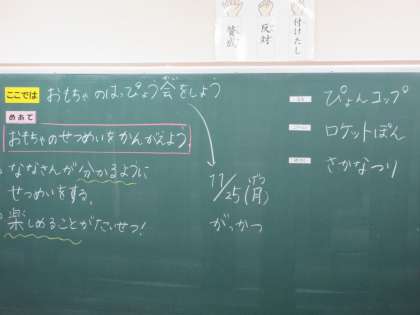 賛成
反対
付けたし
ここでは
おもちゃのはっぴょう会をしよう
めあて
おもちゃのせつめいをかんがえよう。
ななさんが分かるように
せつめいをする。
楽しめることがたいせつ!
11/25(月)
げつ
がっかつ
ぴょんコップ
ロケットぽん
さかなつり